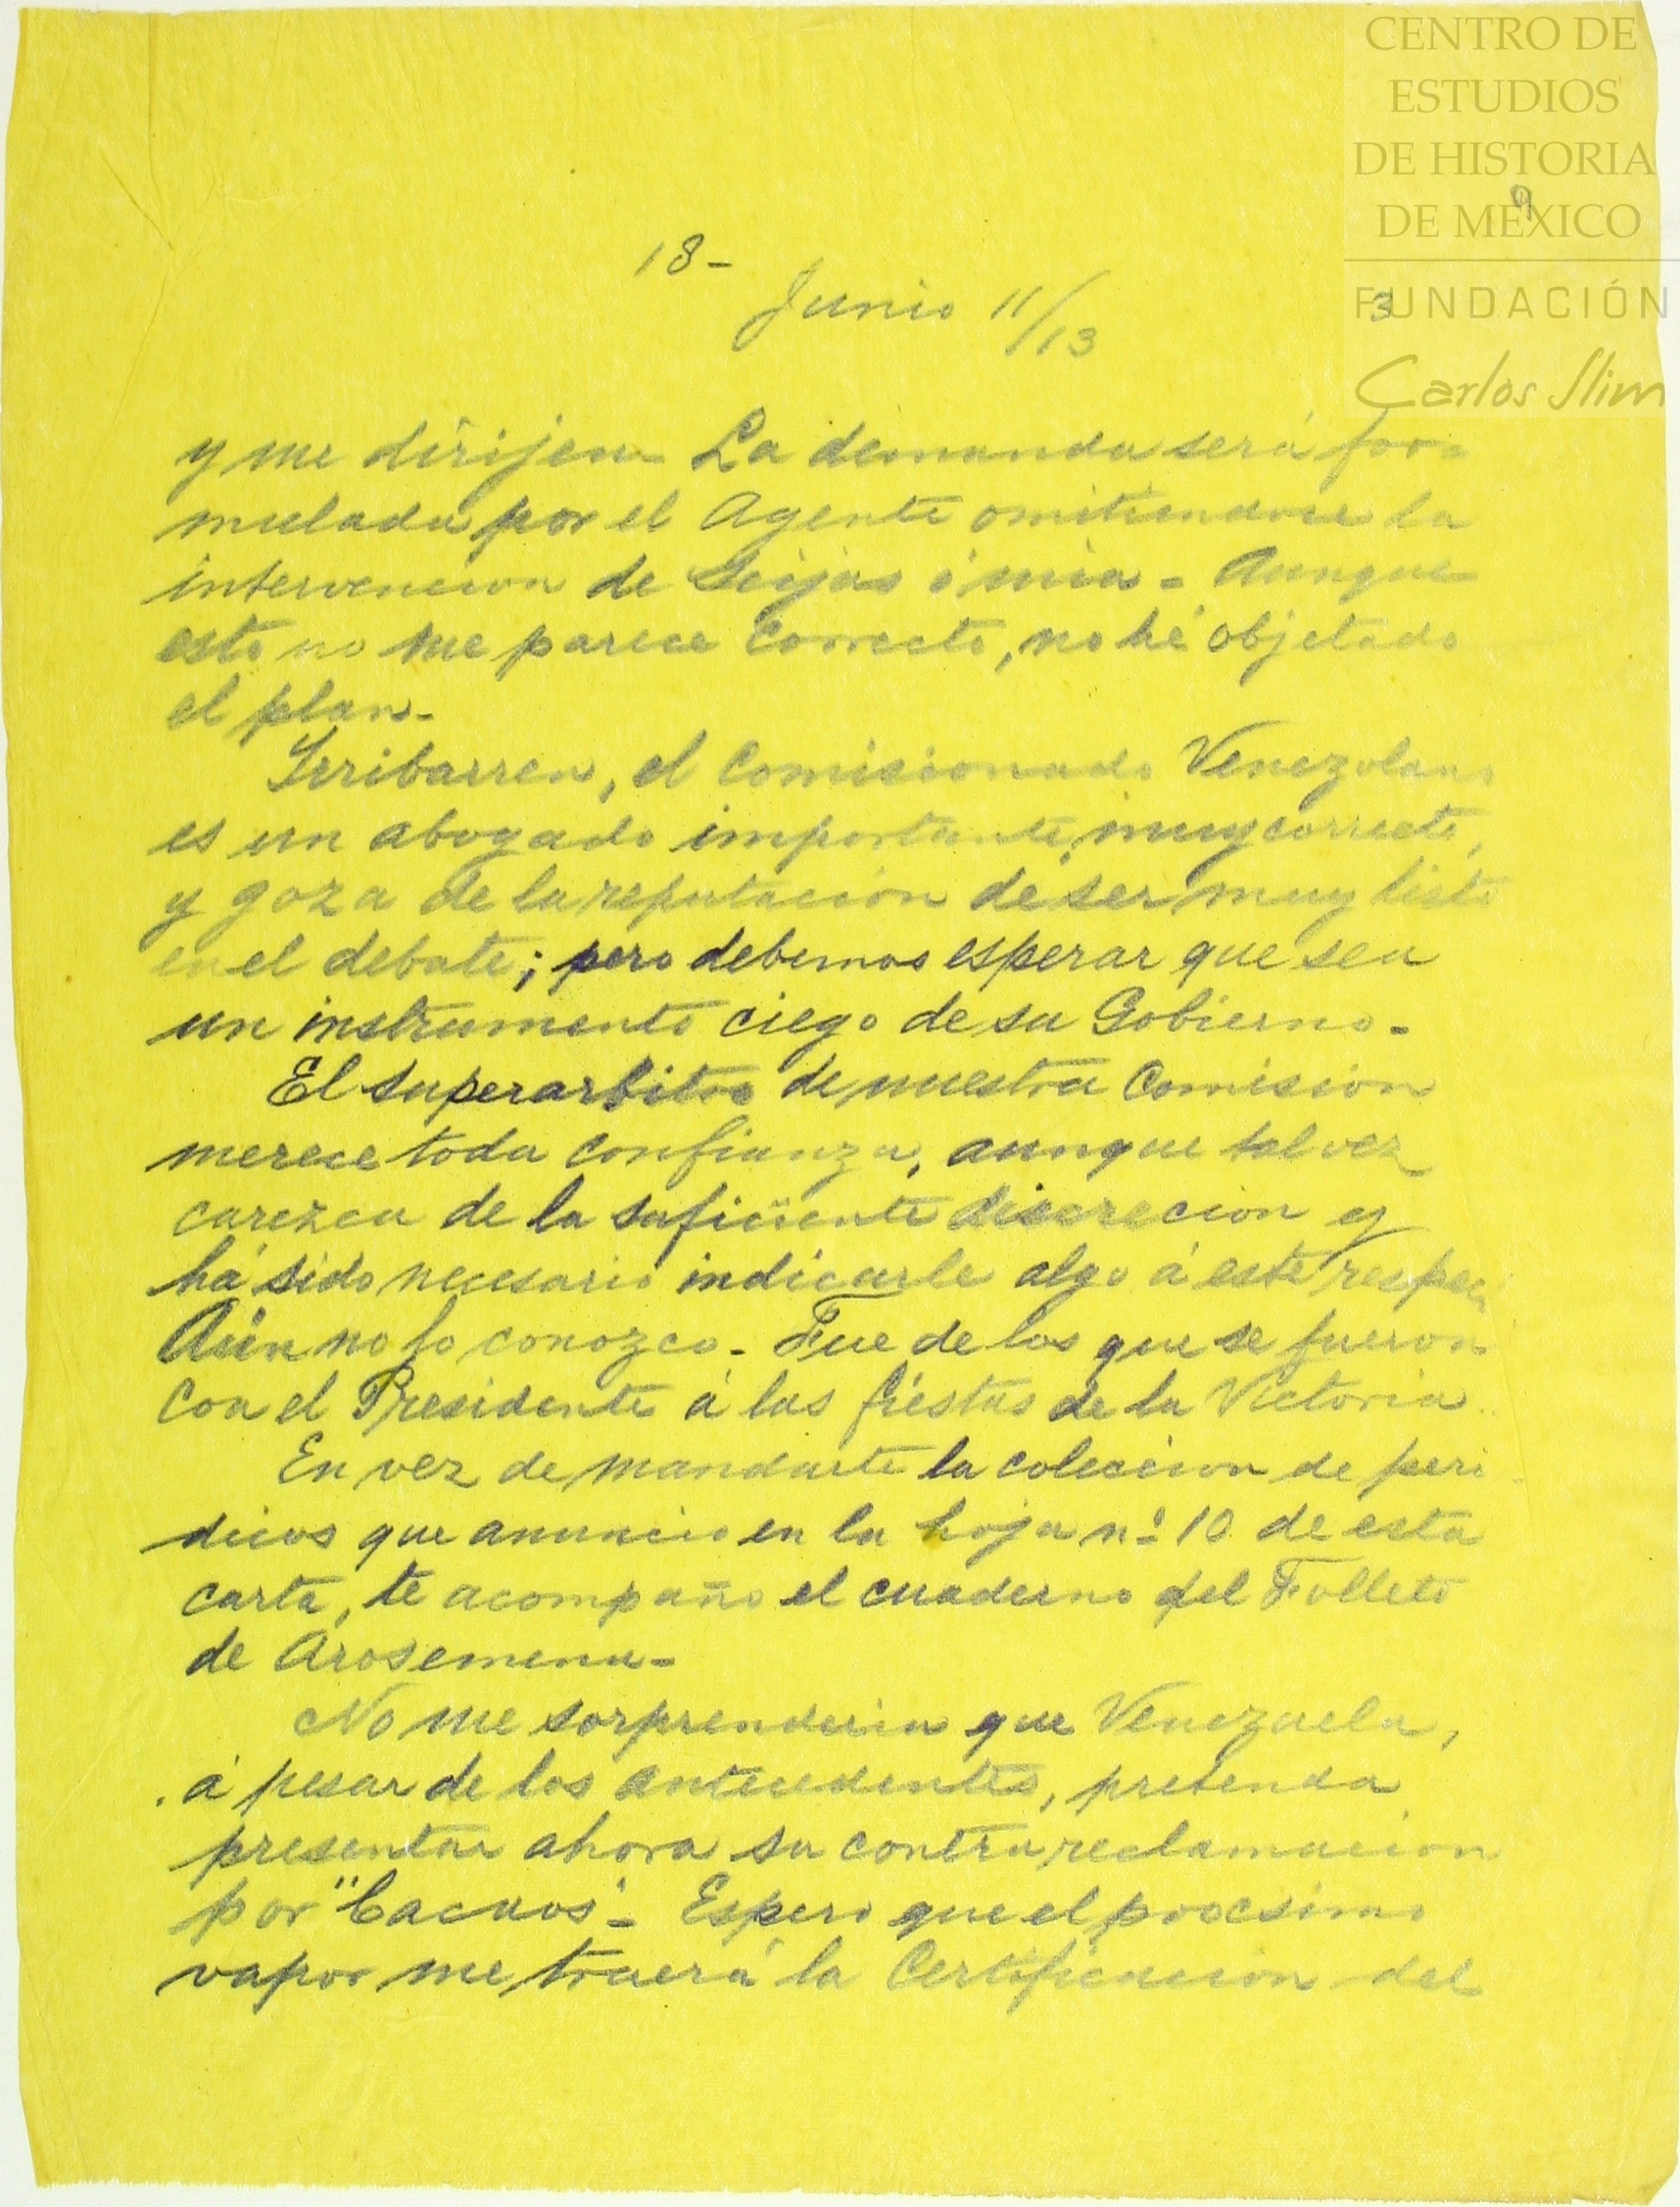 CENTRO DE
ESTUDIOS
DE HISTORIA
DE MÉXICO
FUNDACIÓN
Carlos Slim
9
3
18-
Junio 11/13
y me dirijen - La demanda será for-
mulada por el Agente omitiendose la
intervencion de Seijas ó mia - Aunque
esto no me parece correcto, no hé objetado
el plan -
Yrribarren, el Comisionado Venezolano
es un abogado importante, muy correcto,
y goza de la reputación de ser muy listo
en el debate; pero debemos esperar que sea
un instrumento ciego de su Gobierno -
El superarbitro de nuestra Comision
merece toda confianza, aunque tal vez
carezca de la suficiente discrecion y
há sido necesario indicarle algo á este respec
Aún no lo conozco - Fue de los que se fueron
con el Presidente á las fiestas de la Victoria
En vez de mandarte la coleccion de peri
dicos que anuncio en la hoja nº 10 de esta
carta, te acompaño el cuaderno del Folleto
de Arosemena -
No me sorprenderia que Venezuela,
á pesar de los antecedentes, pretenda
presentar ahora su contrareclamacion
por "Cacaos" - Espero que el procsimo
vapor me traerá la Certificacion del